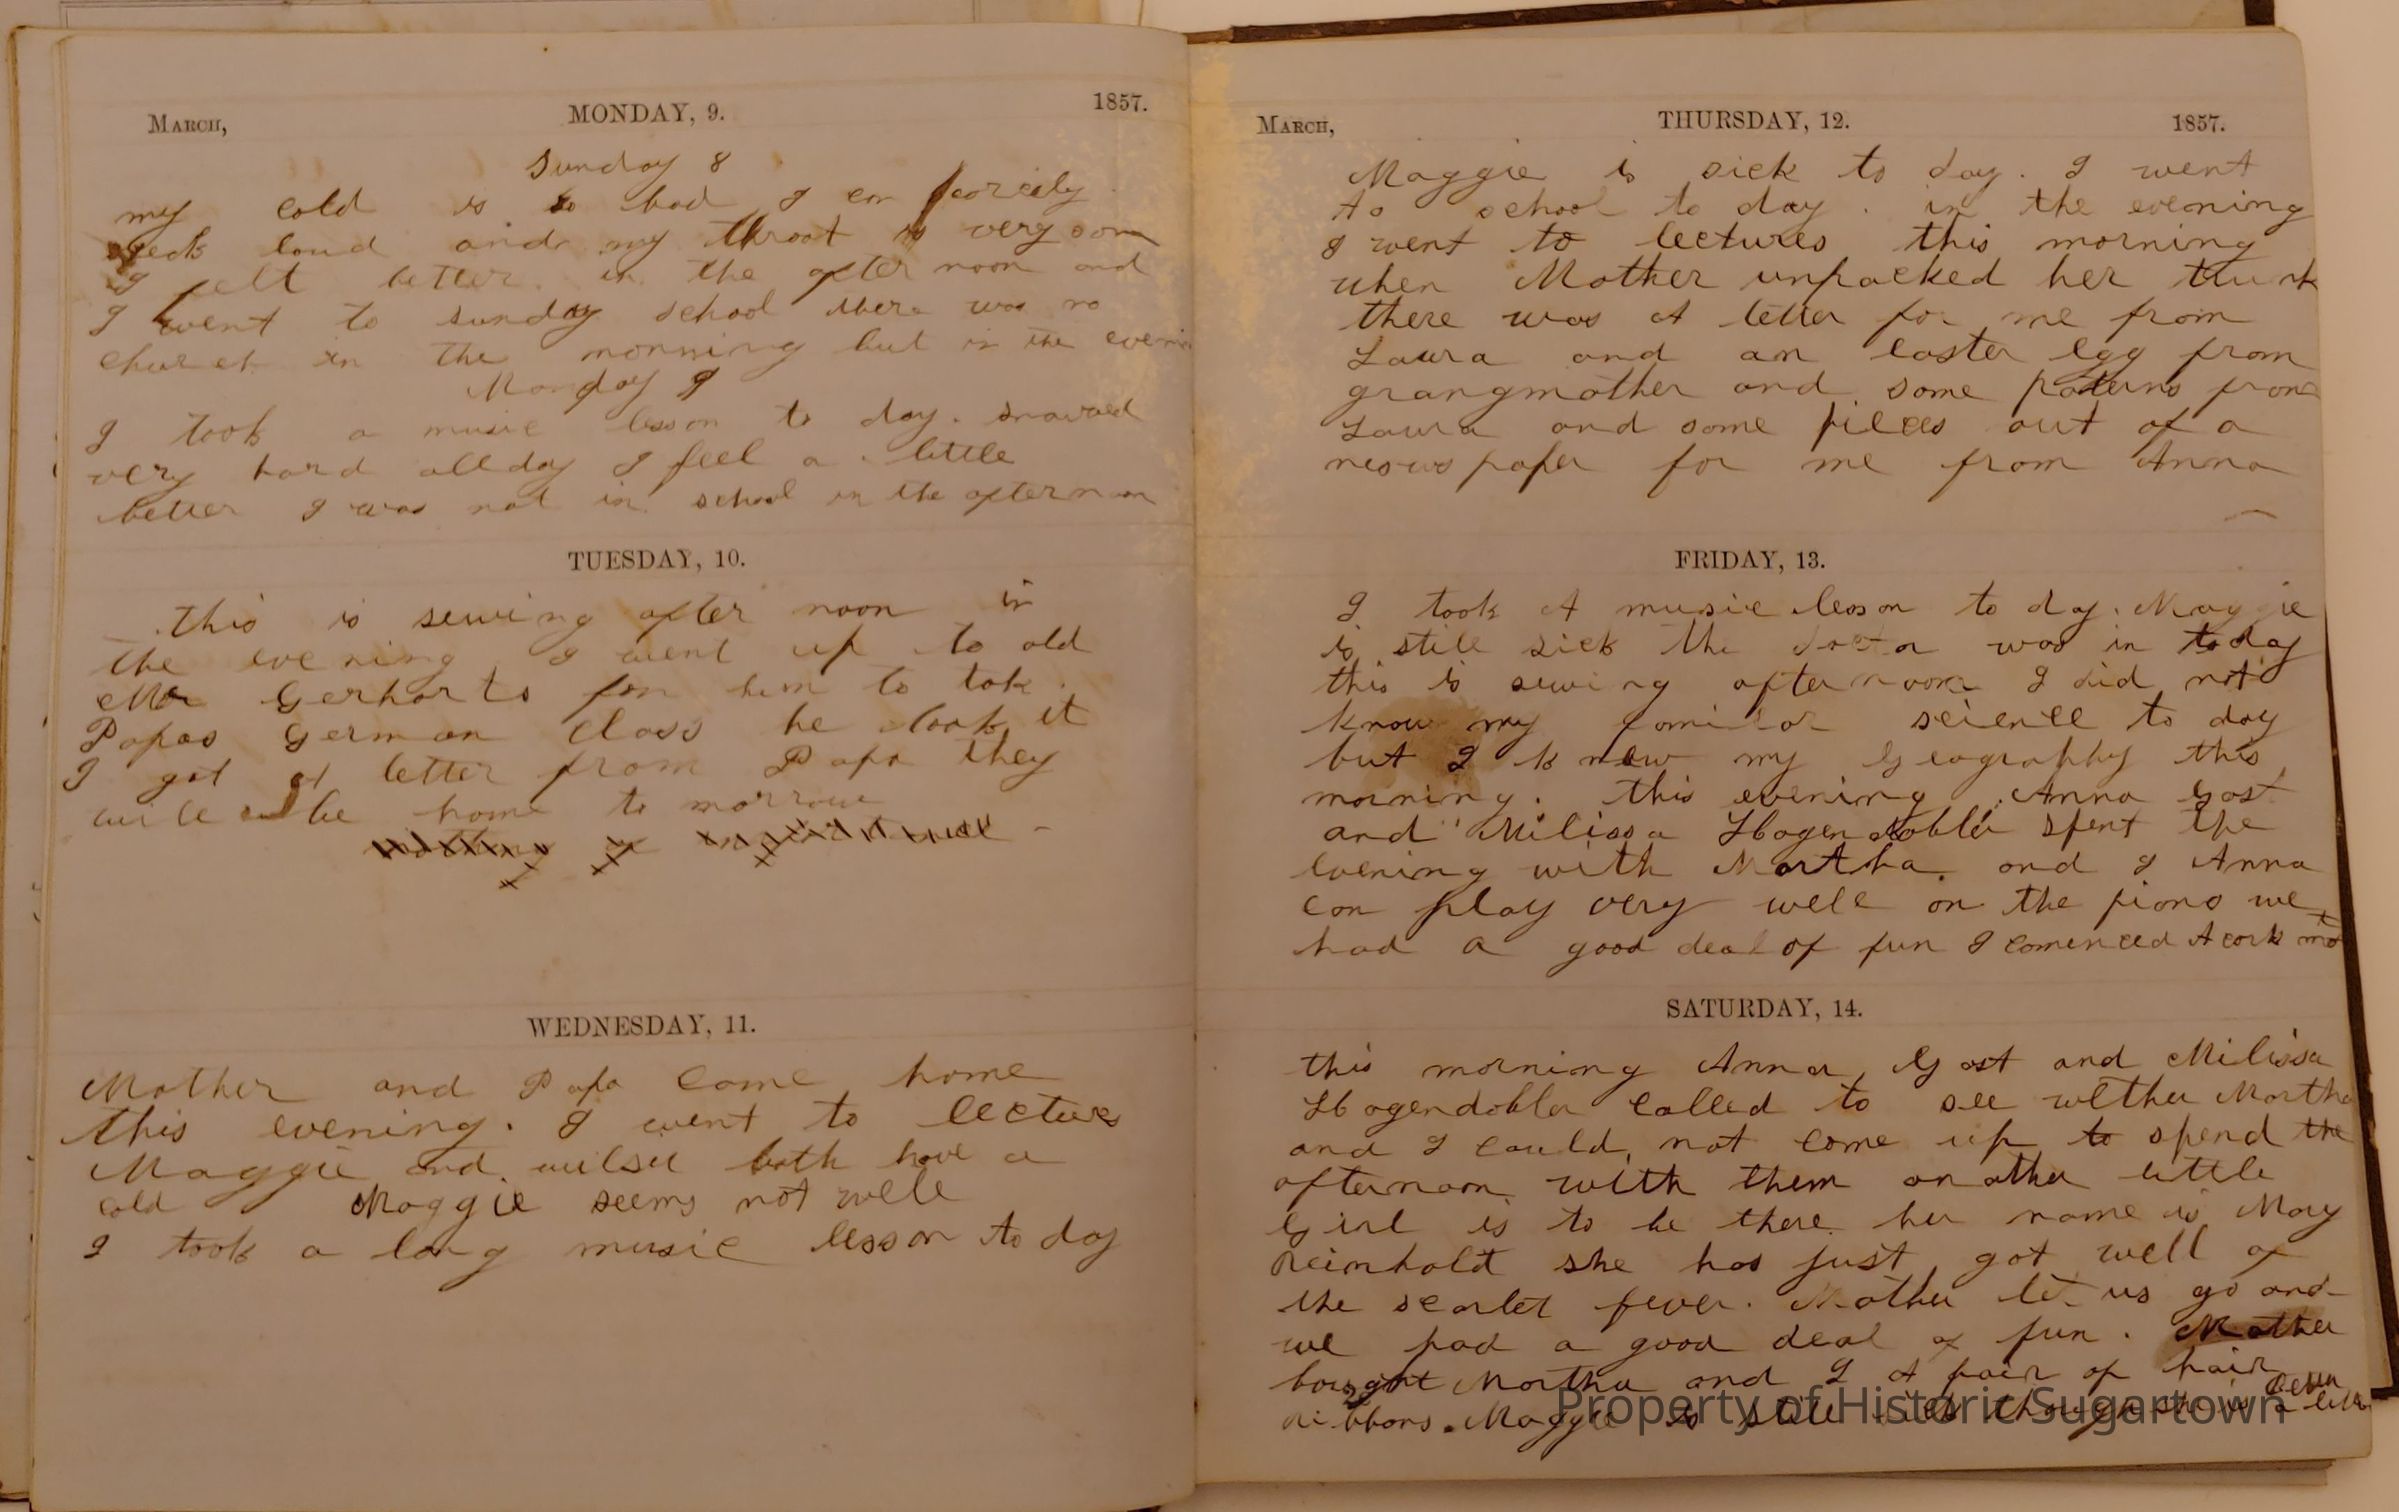 March,
MONDAY, 9.
1857.
Sunday 8
my cold is so bad I can scarcely
speck loud and my throat is very sore
I felt better in the after noon and
I went to sunday school there was no
church in the morning but in the evenin
Monday 9
I took a music lesson to day. snowed
very hard all day I feel a little
better I was not in school in the afternoon
TUESDAY, 10.
this is sewing after noon in
the evening I went up to old
Mr Gerharts for him to take
Papas German class he took it
I got a letter from Papa they
will be home to morrow
WEDNESDAY, 11.
Mother and Papa came home
this evening. I went to lectures
Maggie and willsie both have a
cold Maggie seems not well
I took a long music lesson to day
March,
THURSDAY, 12.
1857.
Maggie is sick to day. I went
to school to day. in the evening
I went to lectures this morning
when Mother unpacked her trunk
there was A letter for me from
Laura and an easter egg from
grangmother and some paterns from
Laura and some pieces out of a
news paper for me from Anna
FRIDAY, 13.
I took A music lesson to day. Maggie
is still sick the doctor was in today
this is sewing afternoon I did not
know my familar science to day
but I knew my Geography this
morning. this evening Anna Gast
and Milissa Hagendobler spent the
evening with Martha and I Anna
can play very well on the piano we
had a good deal of fun I comenced A cork
SATURDAY, 14.
this morning Anna Gast and Milissa
Hagendobler called to see wether Martha
and I could not come up to spend the
afternoon with them another little
Girl is to be there her name is May
Reinhold she has just got well of
the scarlet fever. Mother let us go and
we had a good deal of fun. Mother
bought Martha and I A pair of hair
ribbons. Maggie is still sick though she is a little better
Property of Historic Sugartown